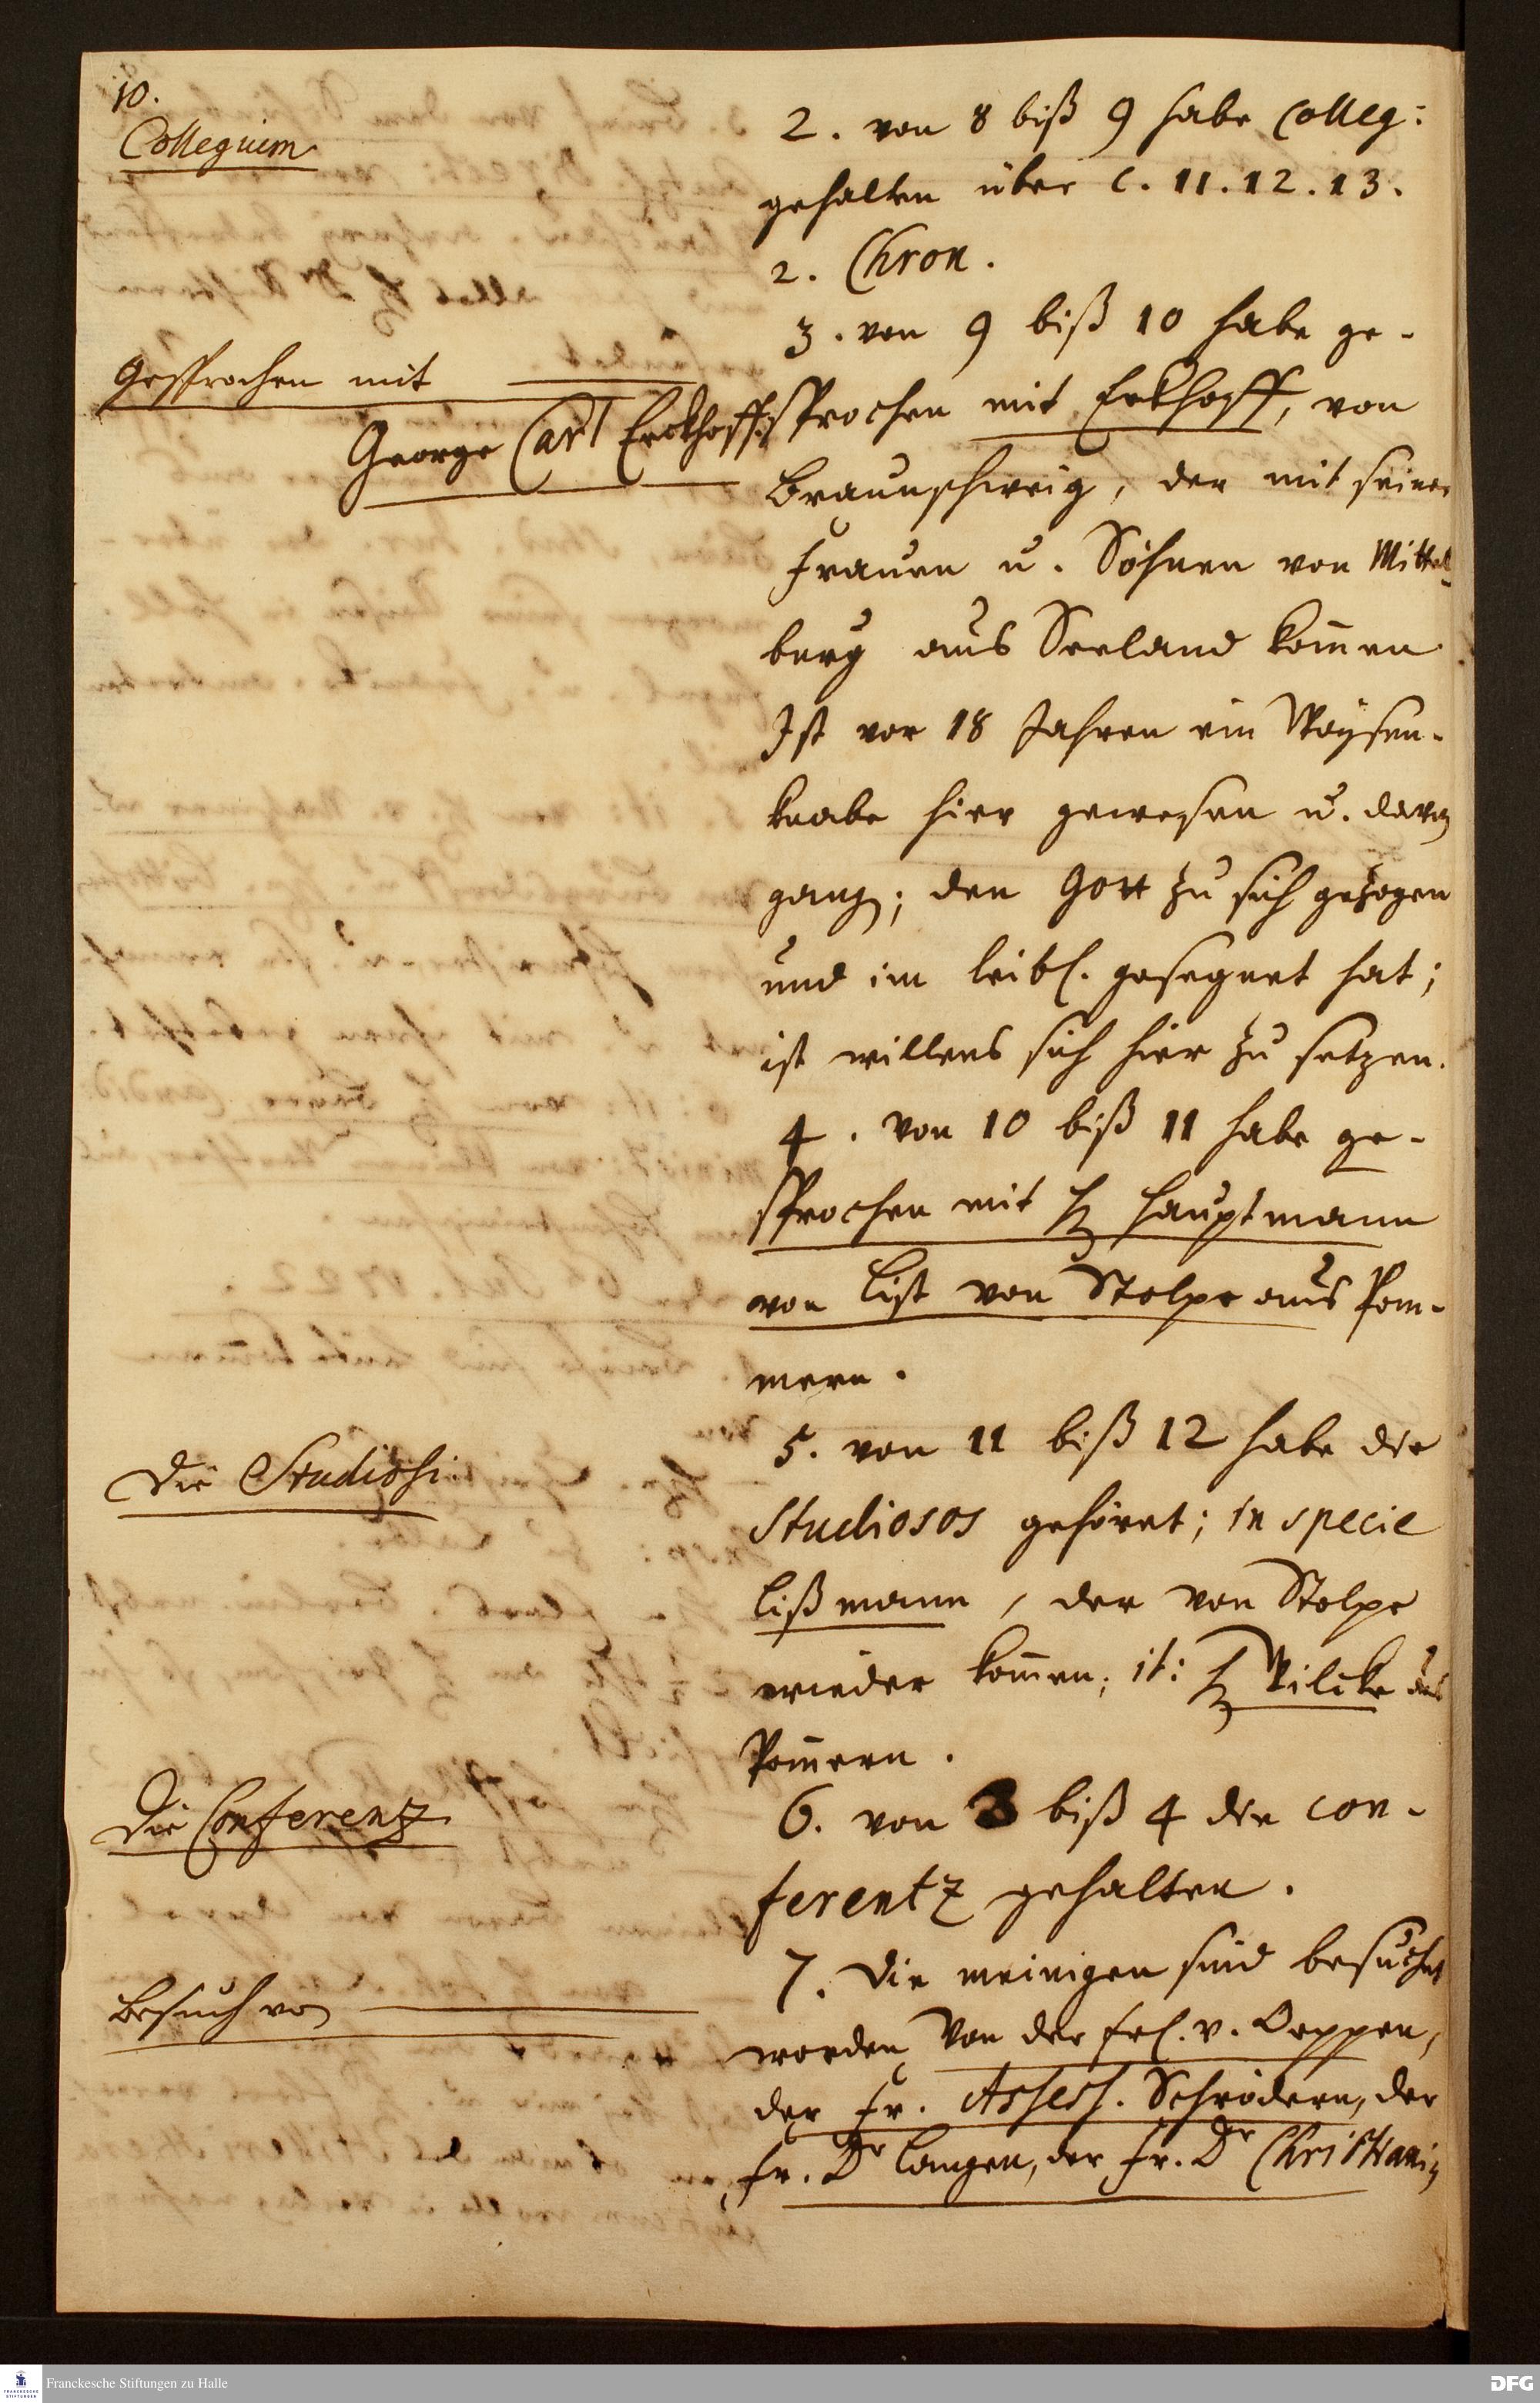 10.
Collegium
2. von 8 biß 9 habe Colleg:
gehalten über C. 11. 12. 13.
2. Chron.
3. von 9 biß 10 habe ge-
Gesprochen mit
George Carl Erckhoff
sprochen mit Erkhoff, von
Braunschweig, der mit seiner
Frauen u. Söhnen von Mittel-
burg aus Seeland kom̄en
Ist vor 18 Jahren ein Waysen-
knabe hier gewesen u. davon
gang; den Gott zu sich gezogen
und im leibl. gesegnet hat;
ist willens sich hier zu setzen.
4. von 10 biß 11 habe ge-
sprochen mit H Hauptmann
von List von Stolpe aus Pom-
mern.
Die Studiosi
5. von 11 biß 12 habe die
Studiosos gehöret; in specie
Lißmann, der von Stolpe
wieder kom̄en; it: H Wilcke aus
Pom̄ern.
Die Conferentz
6. von 3 biß 4 die Con-
ferentz gehalten.
Besuch von
7. Die meinigen sind besuchet
worden von der Frl. v. Oeppen,
der Fr. Assess. Schrödern, der
Fr. Dr Langen, der Fr. Dr Christianin
Franckesche Stiftungen zu Halle
FRANCKESCHE STIFTUNGEN
DFG